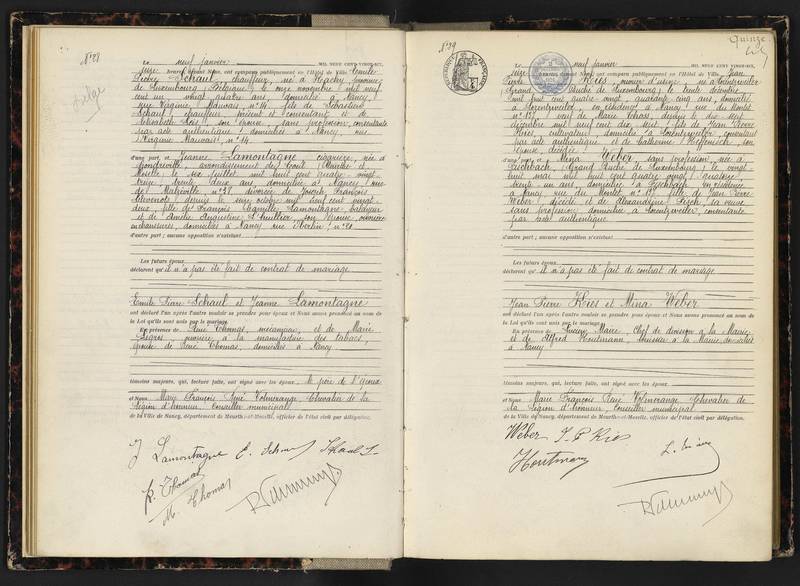 N° 28
Belge
Le neuf janvier MIL NEUF CENT VINGT-SIX,
seize heures devant Nous, ont comparu publiquement en l'Hôtel de Ville Emile
Pierre Schaul, chauffeur, né à Hachy, province
de Luxembourg (Belgique) le onze novembre mil neuf
cent un, vingt quatre ans, domicilié à Nancy,
rue Virginie Mauvais n° 14, fils de Sébastien
Schaul, chauffeur, présent et consentant et de
son épouse, sans profession, consentante
par acte authentique, domiciliés à Nancy, rue
Virginie Mauvais, n° 14
d'une part, et Jeanne Lamontagne, cigarière, née à
Gondreville, arrondissement de Toul (Meurthe et
Moselle) le six juillet mil huit cent quatre-vingt
treize, trente deux ans, domiciliée à Nancy, rue
de Malzéville n° 38, divorcée de Joseph François
depuis le seize octobre mil neuf cent vingt
deux, fille de François Camille Lamontagne, balayeur
et de Amélie Augustine Lhuillier, son épouse, ouvrière
en chaussures, domiciliés à Nancy, rue n° 20
d'autre part ; aucune opposition n'existant.
Les futurs époux
déclarent qu'il n'a pas été fait de contrat de mariage
Emile Pierre Schaul et Jeanne Lamontagne
ont déclaré l'un après l'autre vouloir se prendre pour époux et Nous avons prononcé au nom de
la Loi qu'ils sont unis par le mariage.
En présence de René Thomas, mécanicien, et de Marie
ouvrière à la manufacture des tabacs,
épouse de René Thomas, domiciliés à Nancy
témoins majeurs, qui, lecture faite, ont signé avec les époux, le père de l'époux
et Nous Marie François René Volmerange Chevalier de la
Légion d'honneur, Conseiller municipal
de la Ville de Nancy, département de Meurthe-et-Moselle, officier de l'état civil par délégation.
J. Lamontagne E. Schaul Schaul S
R. Thomas
M. Thomas
Quinze
N° 29
Le neuf janvier MIL NEUF CENT VINGT-SIX,
seize heures devant Nous, ont comparu publiquement en l'Hôtel de Ville Jean
Pierre Kies, ouvrier d'usine, né à Lorentzweiler
(Grand Duché de Luxembourg) le trente décembre
mil huit cent quatre-vingt, quarante cinq ans, domicilié
à Lorentzweiler, en résidence à Nancy, rue du Montet
n° 137, veuf de Marie depuis le dix-neuf
décembre mil neuf cent dix huit, fils de Jean Pierre
Kies, cultivateur, domicilié à Lorentzweiler, consentant
par acte authentique et de Catherine son
épouse, décédée
d'une part, et Mina Weber, sans profession, née à
Fischbach, (Grand Duché de Luxembourg) le vingt
huit mai mil huit cent quatre vingt quatorze,
trente-un ans, domiciliée à Fischbach, en résidence
à Nancy, rue du Montet n° 137, fille de Jean Pierre
Weber, décédé et de Alexandrine sa veuve,
sans profession, domiciliée à Lorentzweiler, consentante
par acte authentique
d'autre part ; aucune opposition n'existant.
Les futurs époux
déclarent qu'il n'a pas été fait de contrat de mariage
Jean Pierre Kies et Mina Weber
ont déclaré l'un après l'autre vouloir se prendre pour époux et Nous avons prononcé au nom de
la Loi qu'ils sont unis par le mariage.
En présence de Lucien Chef de division à la Mairie
et de Alfred Houtmann, huissier à la Mairie, domiciliés
à Nancy
témoins majeurs, qui, lecture faite, ont signé avec les époux
et Nous Marie François René Volmerange Chevalier de
la Légion d'honneur, Conseiller municipal
de la Ville de Nancy, département de Meurthe-et-Moselle, officier de l'état civil par délégation.
Weber J-P Kies
Houtmann